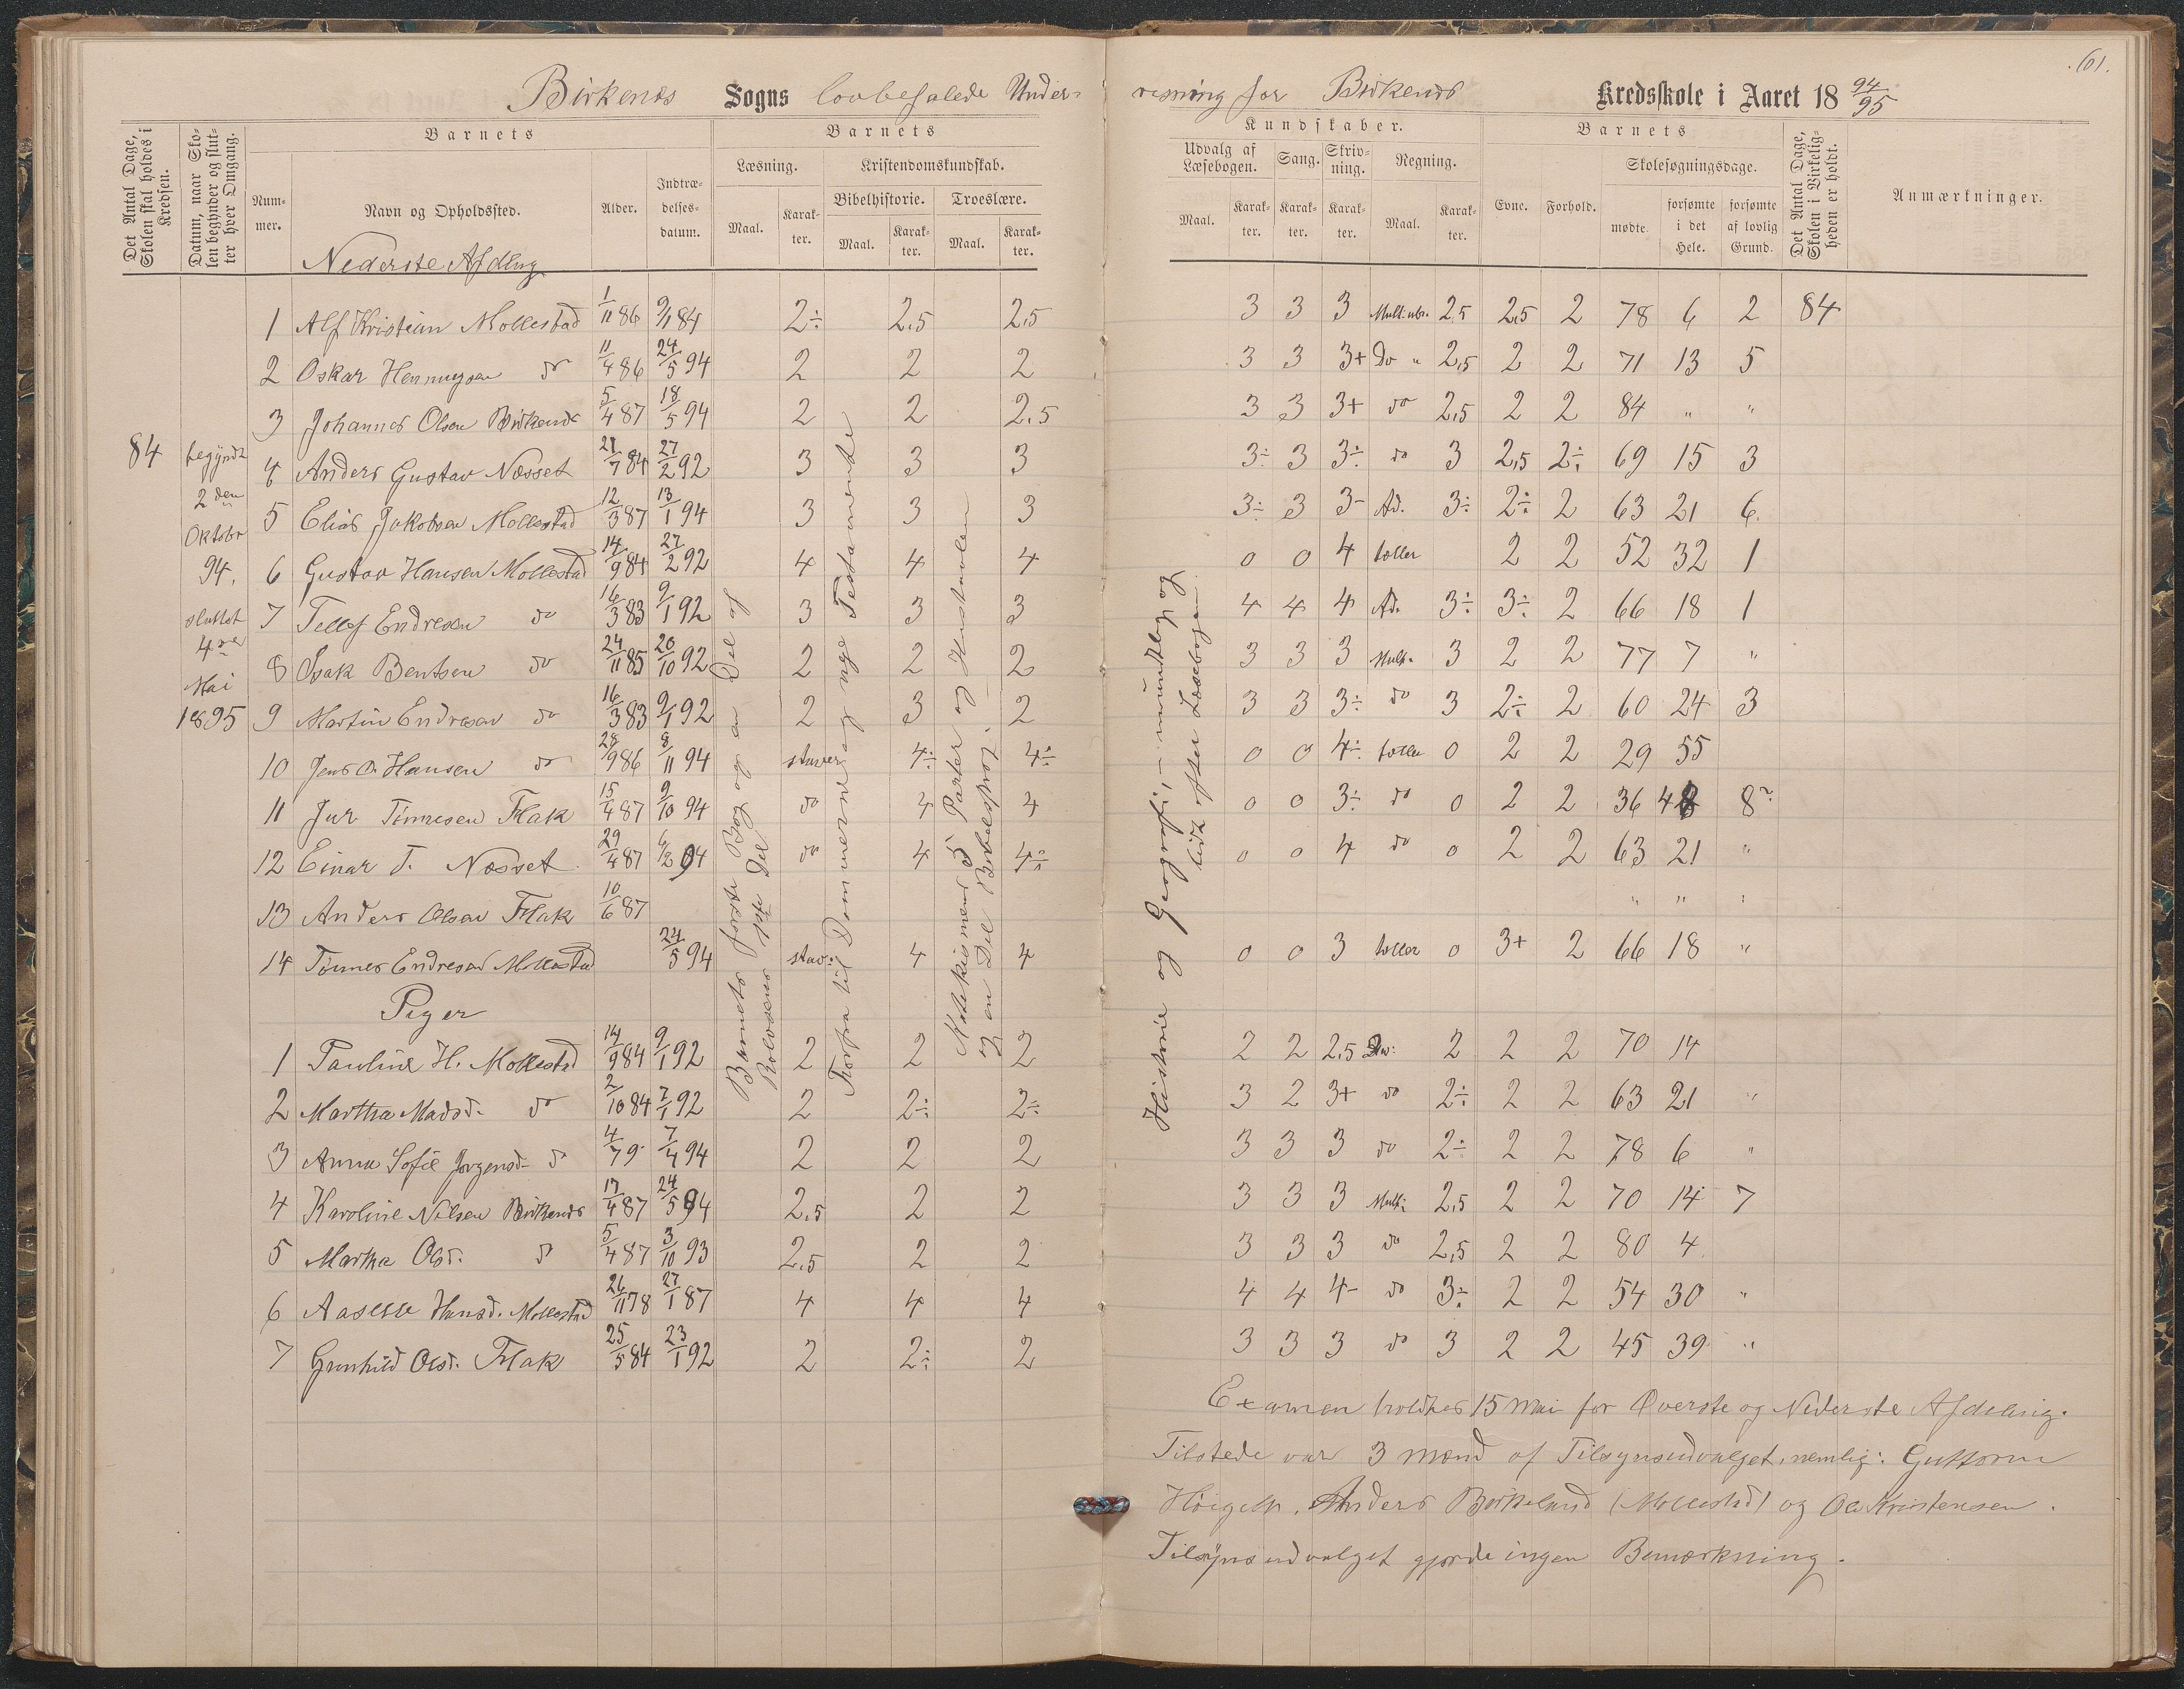 61.
Birkenes Sogns lovbefalede Undervisning for Birkenes Kredsskole i Aaret 18 94/95
Det Antal Dage, Skolen skal holdes i Kredsen.
Datum, naar Skolen begynder og slutter hver Omgang.
Barnets
Nummer.
Navn og Opholdssted.
Alder.
Indtrædelsesdatum.
Barnets
Læsning.
Maal.
Karakter.
Kristendomskundskab.
Bibelhistorie.
Maal.
Karakter.
Troeslære.
Maal.
Karakter.
Kundskaber.
Udvalg af Læsebogen.
Maal.
Karakter.
Sang.
Karakter.
Skrivning.
Karakter.
Regning.
Maal.
Karakter.
Barnets
Evne.
Forhold.
Skolesøgningsdage.
mødte.
forsømte i det Hele.
forsømte af lovlig Grund.
Det Antal Dage, Skolen i Virkeligheden er holdt.
Anmærkninger.
Nederste Afdling
84
begyndt
2den
Oktobr
94.
sluttet
4de
Mai
1895
1 Alf Kristian Mollestad 1/11 86 9/1 84 2÷ 2.5 2,5 3 3 3 2,5 2,5 2 78 6 2 84
2 Oskar Henningsen do 11/4 86 24/5 94 2 2 2 3 3 3+ Do " 2,5 2 2 71 13 5
3 Johannes Olsen Birkenes 5/4 87 18/5 94 2 2 2.5 3 3 3+ do 2,5 2 2 84 " "
4 Anders Gustav Næsset 21/7 84 27/2 92 3 3 3 3÷ 3 3÷ do 3 2,5 2÷ 69 15 3
5 Elias Jakobsen Mollestad 12/3 87 13/1 94 3 3 3 3÷ 3 3- Ad. 3÷ 2÷ 2 63 21 6.
6 Gustav Hansen Mollestad 14/9 84 27/2 92 4 4 4 0 0 4 tæller 2 2 52 32 1
7 Tellef Endresen do 16/3 83 9/1 92 3 3 3 4 4 4 Ad. 3÷ 3÷ 2 66 18 1
8 Isak Bentsen do 24/11 85 20/10 92 2 2 2 3 3 3 Mult. 3 2 2 77 7 "
9 Martin Endresen do 16/3 83 9/1 92 2 3 2 3 3 3÷ do 3 2÷ 2 60 24 3
10 Jens O. Hansen do 28/9 86 8/11 94 staver 4÷ 4÷ 0 0 4÷ tæller 0 2 2 29 55
11 Jur Tønnesen Flak 15/4 87 9/10 94 do 4 4 0 0 3÷ do 0 2 2 36 48 8
12 Einar T. Næsset 29/4 87 6/2 94 do 4 4÷ 0 0 4 do 0 2 2 63 21 "
13 Anders Olsen Flak 10/6 87 " " "
14 Tønnes Endresen Mollestad 24/5 94 stav: 4 4 0 0 3 tæller 0 3+ 2 66 18 "
Piger
1 Pauline H. Mollestad 14/9 84 9/1 92 2 2 2 2 2 2,5 2 2 2 70 14
2 Martha Madsd. do 2/10 84 7/1 92 2 2÷ 2÷ 3 2 3+ do 2÷ 2 2 63 21 "
3 Anna Sofie Jørgensd. do 4/79 7/4 94 2 2 2 3 3 3 do 2÷ 2 2 78 6 "
4 Karoline Nilsen Birkenes 17/4 87 24/5 94 2,5 2 2 3 3 3 Mult: 2,5 2 2 70 14 7
5 Martha Olsd. do 5/4 87 3/10 93 2.5 2 2 3 3 3 do 2,5 2 2 80 4
6 Aaselle Hansd. Mollestad 26/11 78 27/1 87 4 4 4 4 4 4- do 3÷ 2 2 54 30 "
7 Gunhild Olsd. Flak 25/5 84 23/1 92 2 2÷ 2 3 3 3 do 3 2 2 45 39 "
Barnets første Bog og en Del af
Rolvsens 1ste Del
Forfra til Dommerne og nye Testamente
Katekismens 5 Parter og Hustavlen
og en Del Bibelsprog.
Historie og Geografi, - mundtlig og
lidt efter Læsebogen
Examen holdtes 15 Mai for Øverste og Nederste Afdeling.
Tilstede var 3 Mænd af Tilsynsudvalget, nemlig: Guttorm
Anders Birkeland (Mollestad) og Ole Kristensen.
Tilsynsudvalget gjorde ingen Bemærkning.